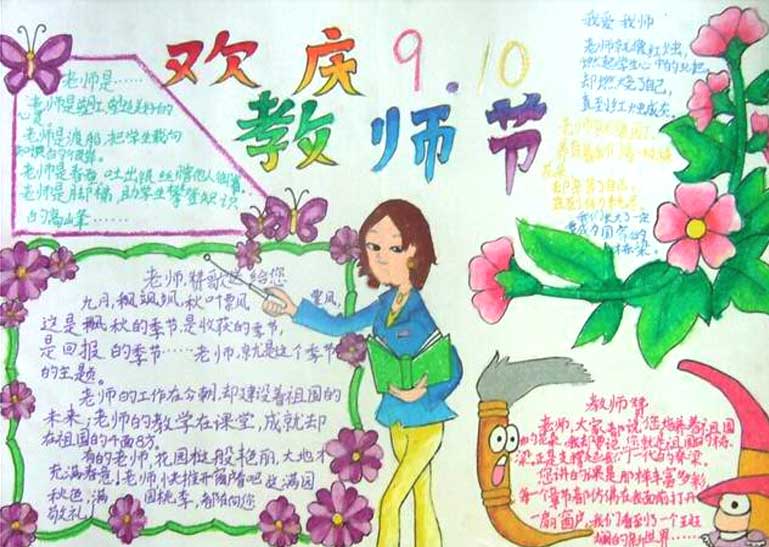 欢庆9.10
教师节
老师是……
老师是渡船,把学生载向
老师是春蚕,吐出银丝
老师是脚梯,助学生攀登知识
的高山峰……
老师,将歌送给您
九月,飒飒,秋叶飘
这是飘秋的季节,是收获的季节,
是回报的季节……老师,您就是这个季节
的主题。
老师的工作在今朝,却建设着祖国的
未来;老师的教学在课堂,成就却
在祖国的
有的老师,花园般艳丽,大地
充满春意!老师快推开窗户看吧,这满园
秋色,满园桃李,都在向您
敬礼!
我爱我师
老师就像红烛,
燃起学生心中的火把,
却燃烧了自己,
直到红烛成灰。
我们长大了一定
要成为国家的
栋梁。
教师赞
老师,大家都说您培养着祖国
的花朵,我却要说,您就是祖国的栋
梁。正是支撑起我们一代的脊梁。
您讲的课是那样丰富多彩,
每一个章节都仿佛在我面前打开
一扇窗户,我们看到了一个斑
斓的新世界……